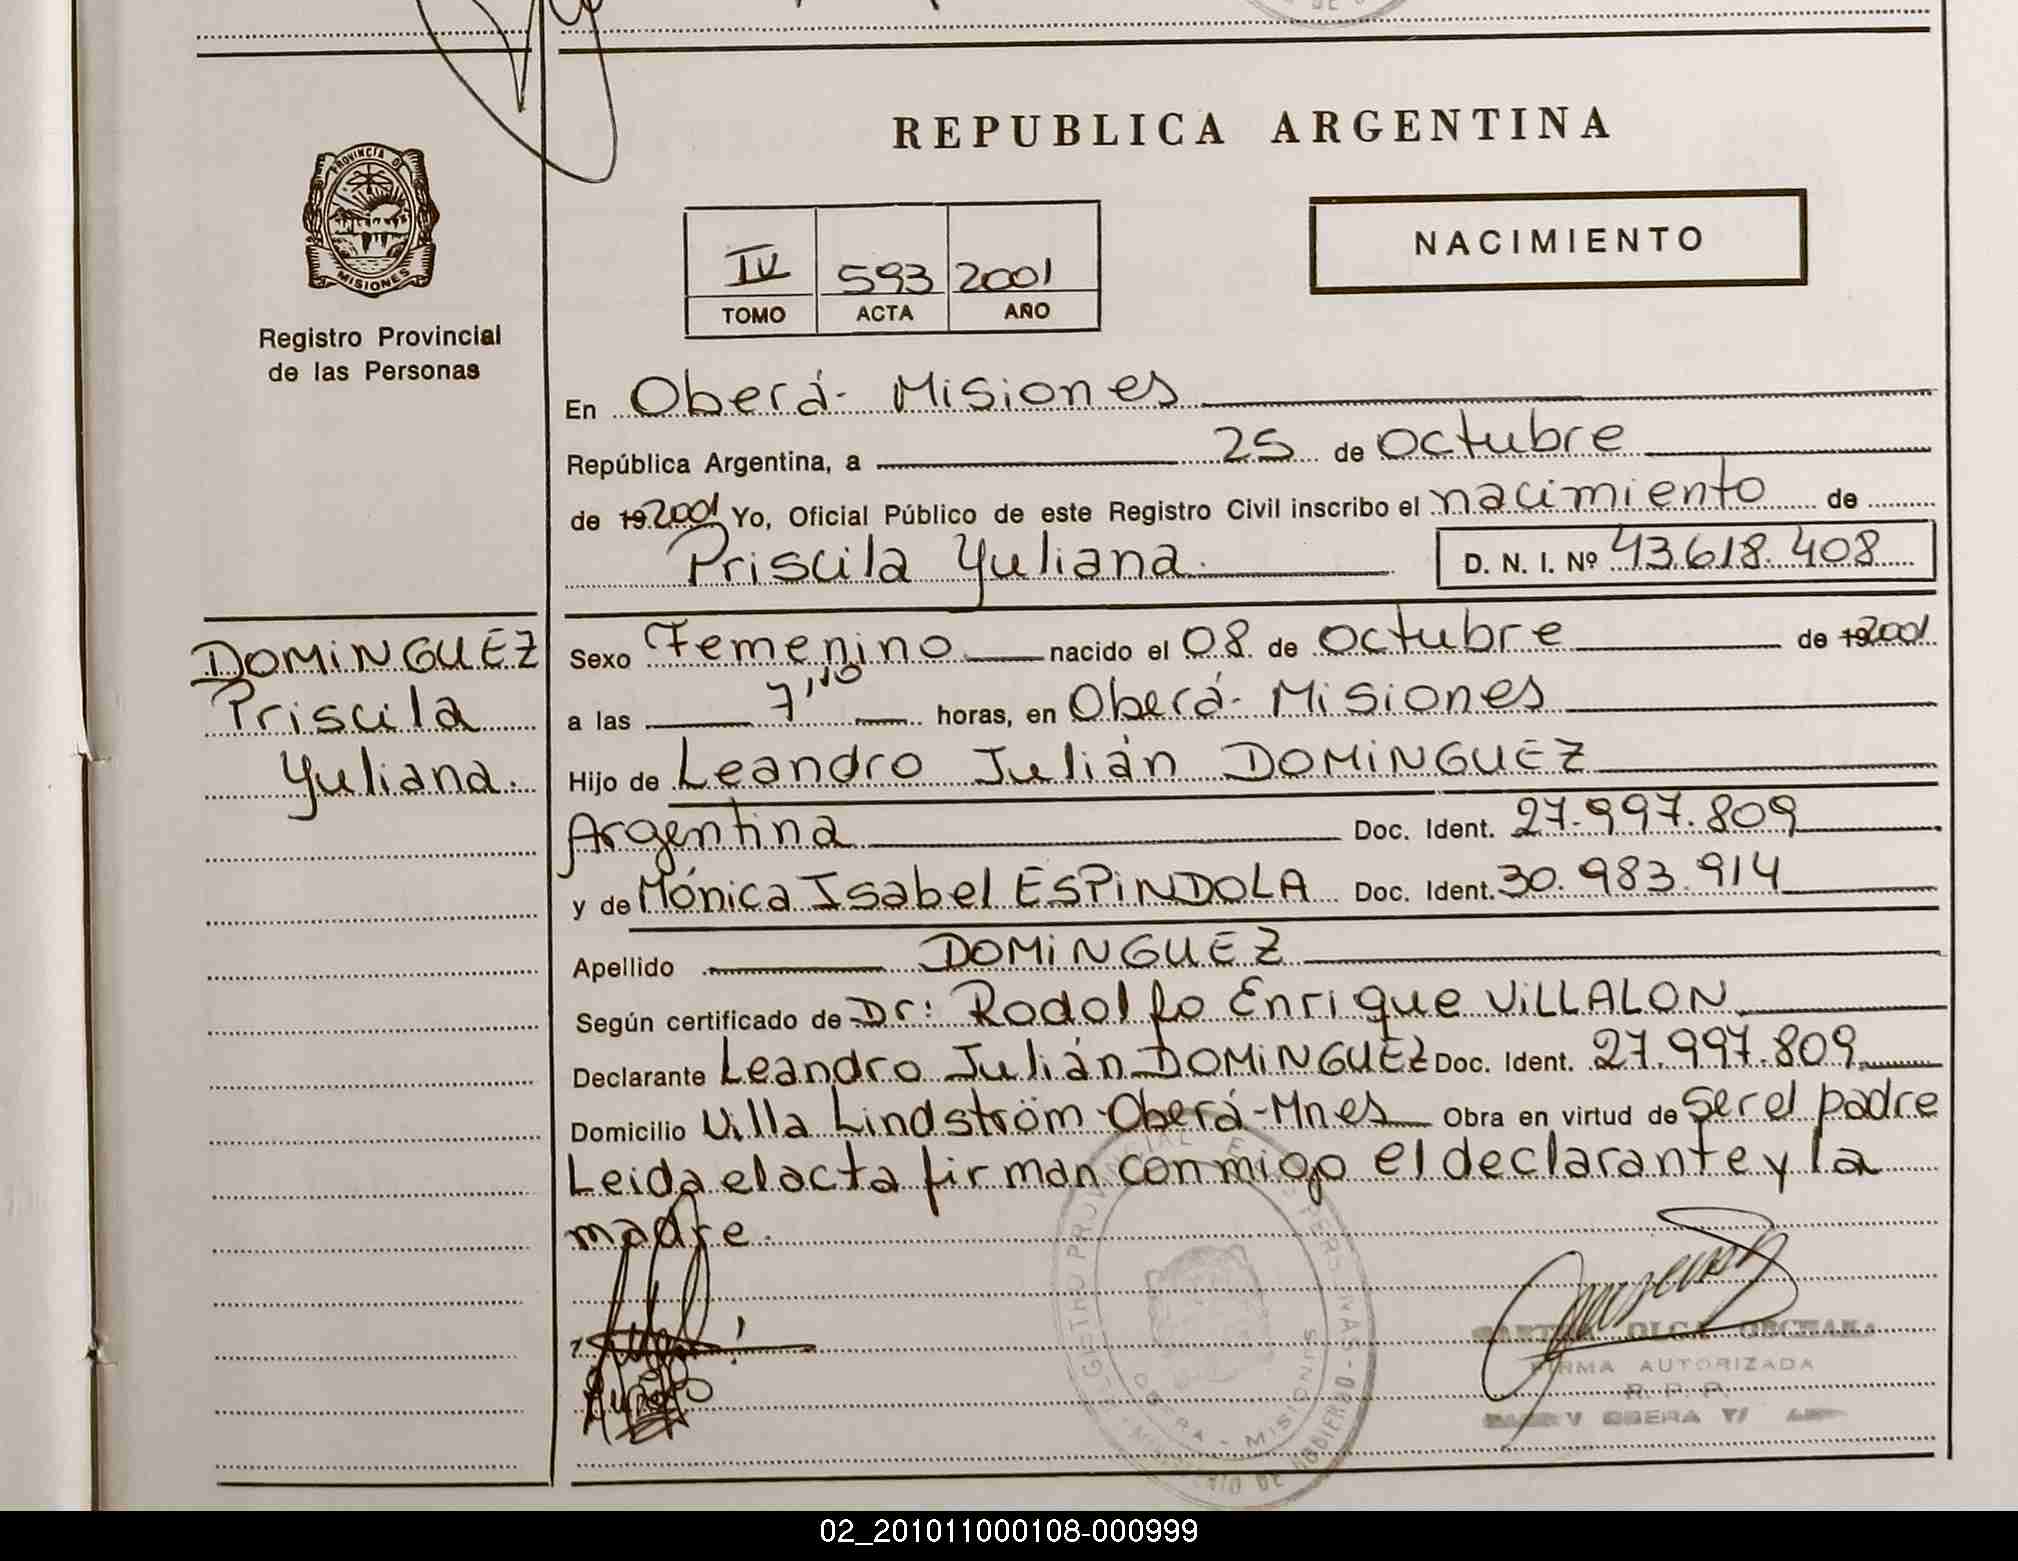 PROVINCIA DE
MISIONES
Registro Provincial
de las Personas
REPUBLICA ARGENTINA
NACIMIENTO
IV 593 2001
TOMO ACTA AÑO
En Oberá- Misiones
República Argentina, a 25 de octubre
de 19 2001 Yo, Oficial Público de este Registro Civil inscribo el nacimiento de
Priscila Yuliana. D. N. I. Nº 43.618.408
DOMINGUEZ
Priscila
Yuliana.
Sexo Femenino nacido el 08 de octubre de 19 2001
a las 7,10 horas, en Oberá- Misiones
Hijo de Leandro Julián DOMINGUEZ
Argentina Doc. Ident. 27.997.809
y de Mónica Isabel ESPINDOLA Doc. Ident. 30.983.914
Apellido DOMINGUEZ
Según certificado de Dr: Rodolfo Enrique VILLALON
Declarante Leandro Julián DOMINGUEZ Doc. Ident. 27.997.809
Domicilio Villa Lindström-Oberá-Mnes Obra en virtud de Ser el padre
Leida el acta firman conmigo el declarante y la
madre.
OBERA - MISIONES
FIRMA AUTORIZADA
R. P. P.
02_201011000108-000999